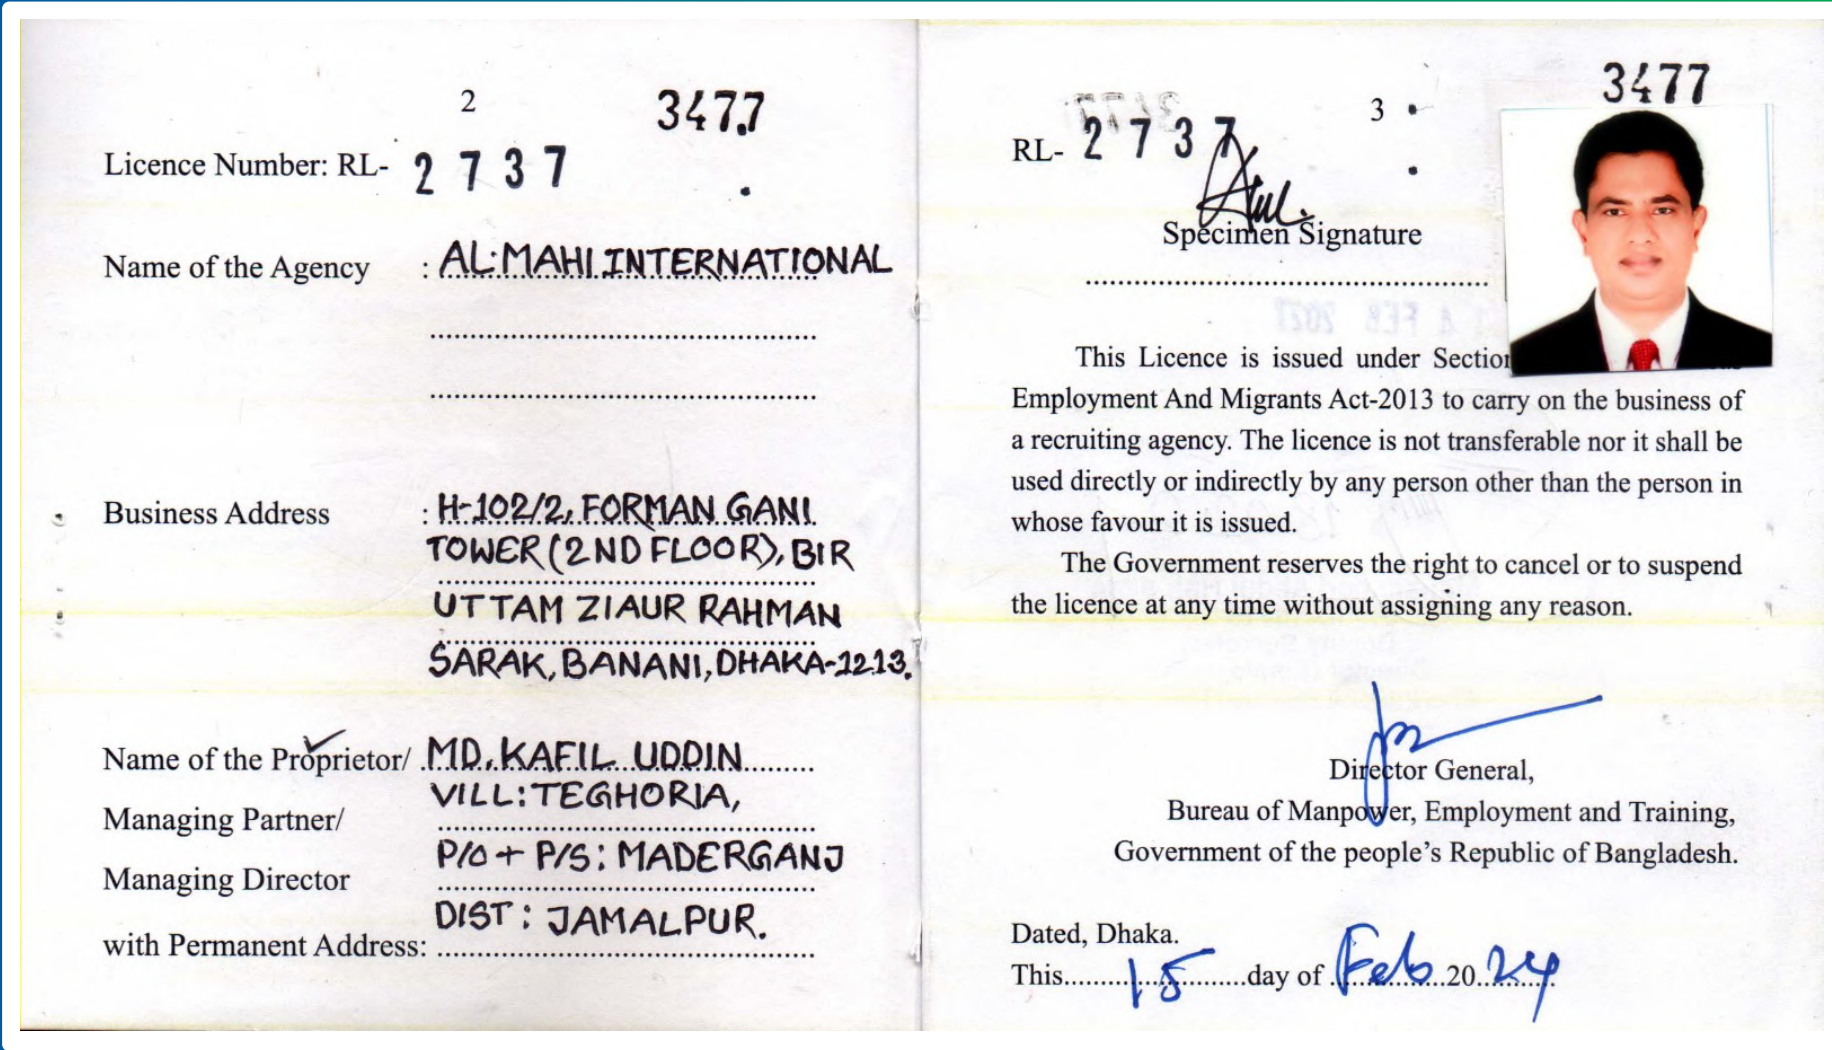 2
3477
Licence Number: RL- 2737
Name of the Agency : AL-MAHI INTERNATIONAL
Business Address : H-102/2, FORMAN GANI
TOWER (2ND FLOOR), BIR
UTTAM ZIAUR RAHMAN
SARAK, BANANI, DHAKA-1213.
Name of the Proprietor/ MD. KAFIL UDDIN
VILL: TEGHORIA,
Managing Partner/
P/O + P/S: MADERGANJ
Managing Director
DIST: JAMALPUR.
with Permanent Address:
3
3477
RL- 2737
Specimen Signature
This Licence is issued under Section
Employment And Migrants Act-2013 to carry on the business of
a recruiting agency. The licence is not transferable nor it shall be
used directly or indirectly by any person other than the person in
whose favour it is issued.
The Government reserves the right to cancel or to suspend
the licence at any time without assigning any reason.
Director General,
Bureau of Manpower, Employment and Training,
Government of the people's Republic of Bangladesh.
Dated, Dhaka.
This 15 day of Feb 2024